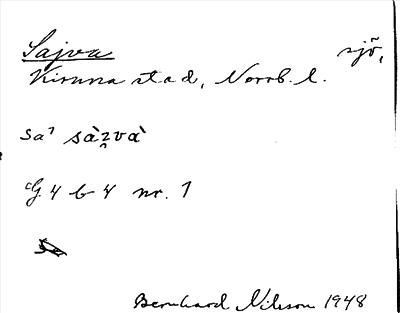 Sajva sjö,
Kiruna stad, Norrb. l.
sa⁊ sàzvà
G. 4 b 4 nr. 1
Bernhard Nilsson 1948